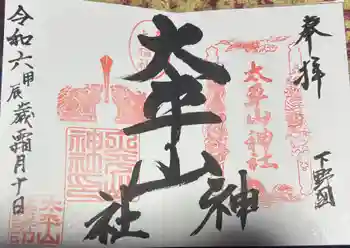 奉拝
下野國
太平山神社
太平山神社
令和六甲辰歳霜月十日